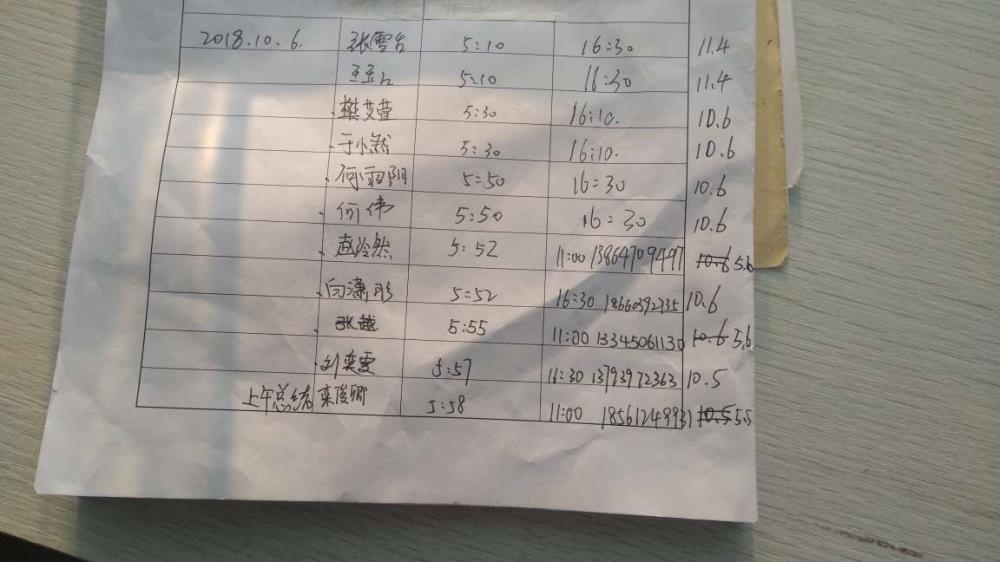 2018.10.6. 张雪台 5:10 16:30 11.4
5:10 16:30 11.4
樊艾萱 5:30 16:10. 10.6
于小鋭 5:30 16:10. 10.6
何雨阳 5:50 16:30 10.6
何伟 5:50 16:30 10.6
赵泠然 5:52 11:00 13864709497 10.6 5.6
向潇彤 5:52 16:30 18660392735 10.6
张越 5:55 11:00 13345061130 10.6 5.6
刘奕雯 5:57 16:30 13793972363 10.5
上午总结 栾俊卿 5:58 11:00 18561249931 10.5 5.5